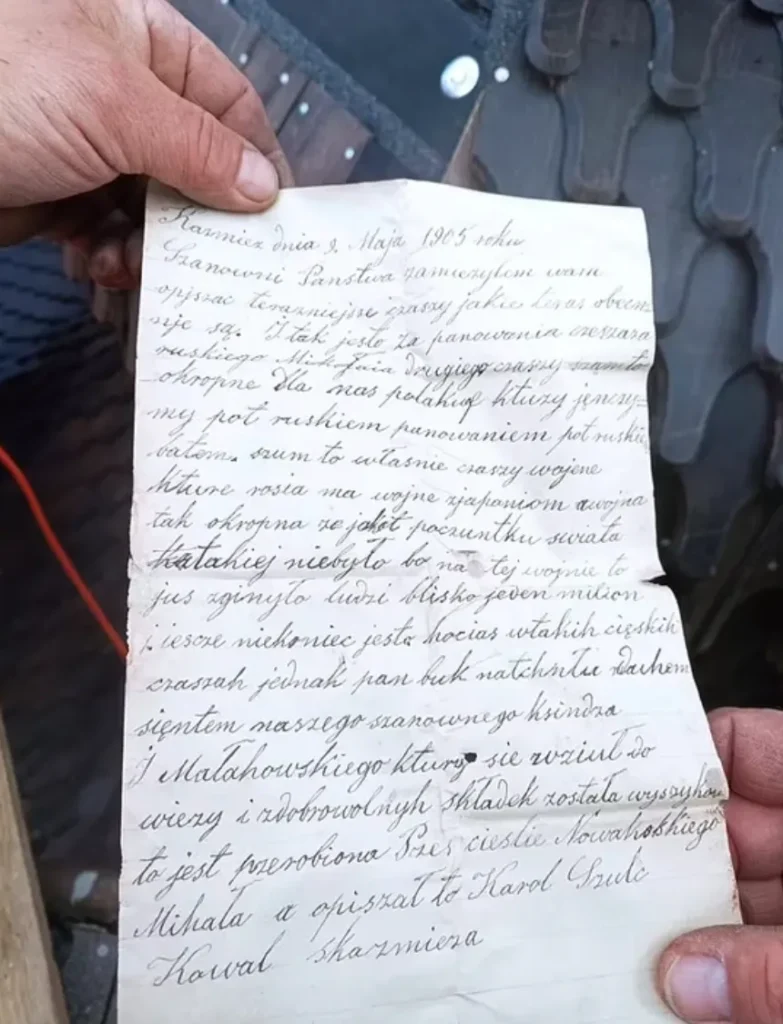 Kazmiez dnia 2. Maja 1905 roku
Szanowni Panstwa zamiezylem wam
opjszac terazniejsze czaszy jakie teras obecz
nje są. I tak jesto za panowania czeszara
ruskiego Mikołaia drugiego czaszy szam to
okropne dla nas polakuf ktuzy jęnczy
my pot ruskiem panowaniem pot ruskie
batem. szum to własnie czaszy wojene
kture rosia ma wojne zjaponiom a wojna
tak okropna ze jak ot poczuntku swiata
to takiej niebyło bo na tej wojnie to
jus zginyło ludzi blisko jeden milion
i iescze niekoniec jesto hocias wtakih cięskih
czaszah jednak pan buk natchnłu duchem
sięntem naszego szanownego ksindza
J Małahowskiego ktury sie wziuł do
wiezy i zdobrowolnyh składek została wyszykow
to jest przerobiona Przes cieslie Nowakoskiego
Mihała a opiszał to Karol Szulc
Kowal skazmieza